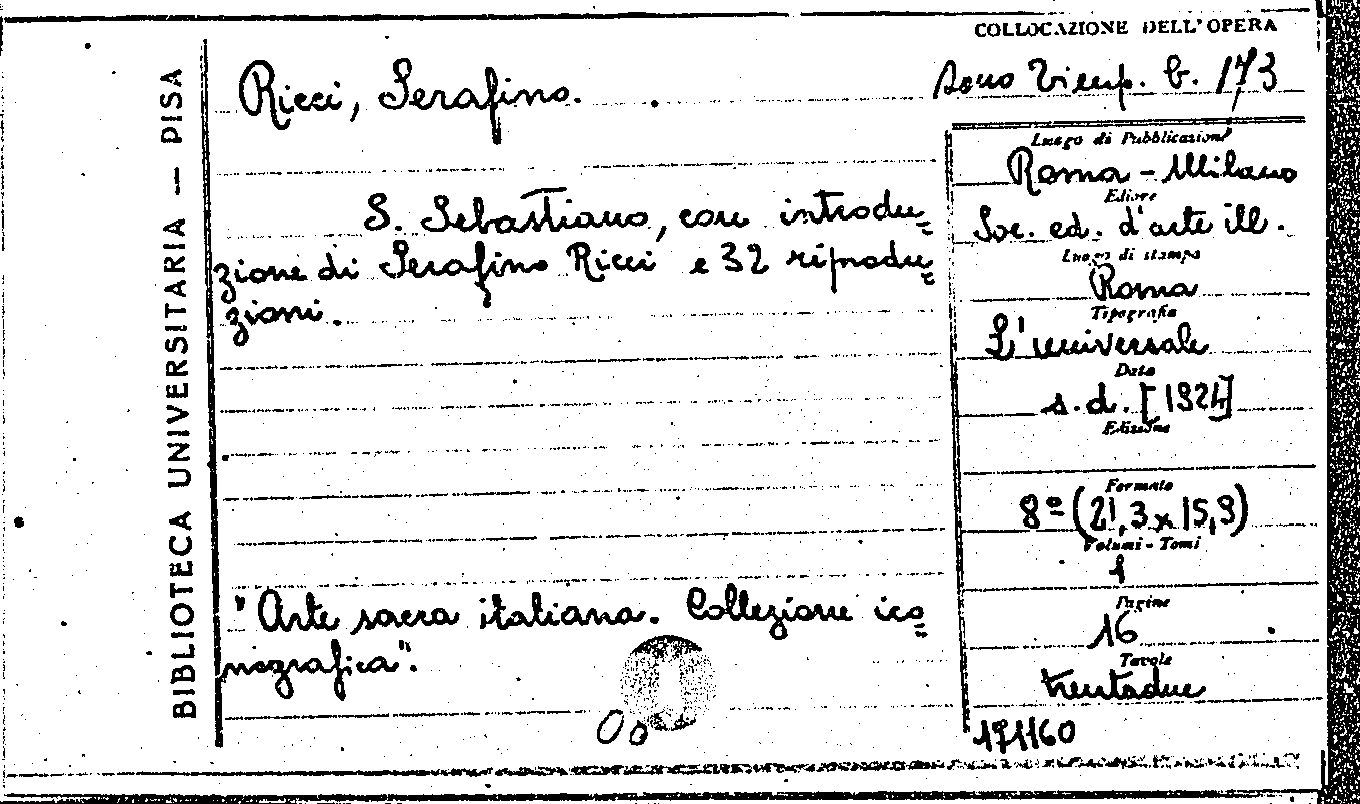 BIBLIOTECA UNIVERSITARIA — PISA
COLLOCAZIONE DELL'OPERA
b. 173
Ricci, Serafino.
S. Sebastiano, con introdu=
zione di Serafino Ricci e 32 riprodu=
zioni.
"Arte sacra italiana. Collezione ico=
nografica".
Luogo di Pubblicazione
Roma - Milano
Editore
Soc. ed. d'arte ill.
Luogo di stampa
Roma
Tipografia
L'universale
Data
s.d. [1924]
Edizione
Formato
8º (21,3 x 15,9)
Volumi - Tomi
1
Pagine
16
Tavole
trentadue
171160